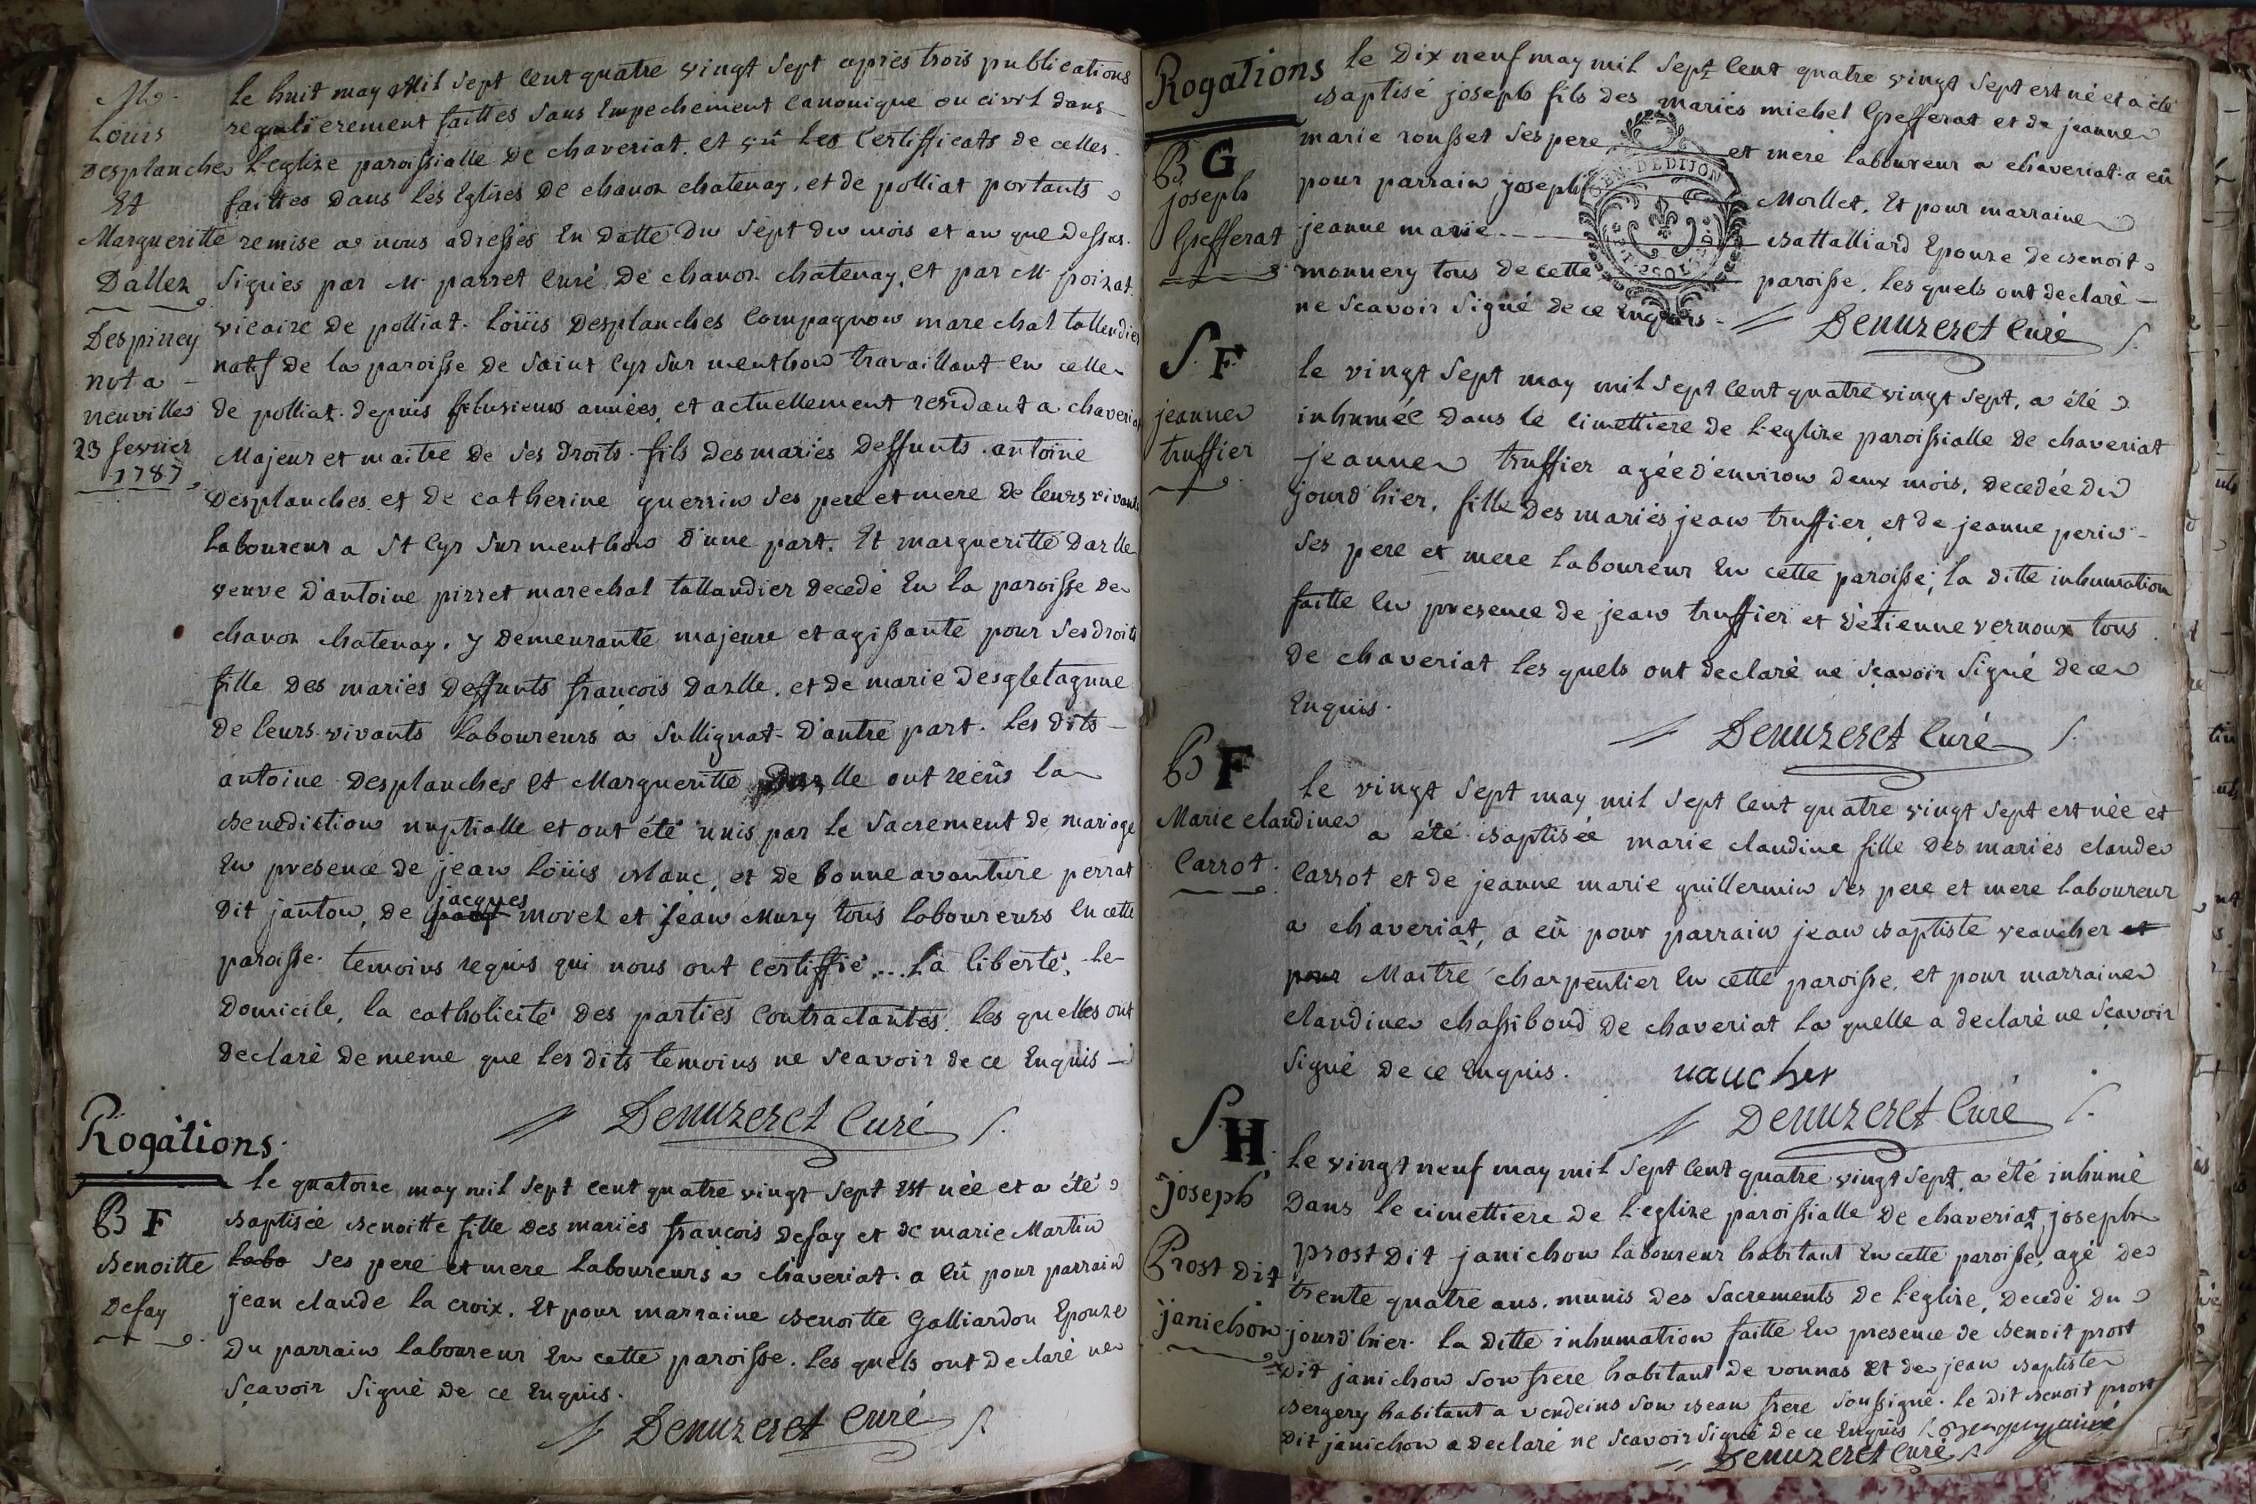 M
Loüis
desplanches
Et
Margueritte
Dallez
Despiney
nota
neuvilles
23 fevrier
1787
le huit may Mil sept cent quatre vingt sept apries trois publications
regulierement faittes sans Empechement Canonique ou civil dans
l'eglize paroissialle de chaveriat. et vû les Certifficats de celles
faittes dans les Eglizes de chanoz chatenay, et de polliat portants
remise a nous adressés En datte du sept du mois et an que dessus.
signiés par Mr parret Curé de chanoz chatenay, et par Mr poizat
vicaire de polliat. Loüis Desplanches Compagnon marechal tallendier
natif de la paroisse de Saint Cyr sur menthon travaillant en celle
de polliat depuis plusieurs années, et actuellement residant a chaveriat
Majeur et maitre de ses droits. fils des mariés Deffunts antoine
Desplanches et de catherine guerrin ses pere et mere de leurs vivants
laboureur a St Cyr sur menthon d'une part. Et margueritte Darlle
veuve d'antoine pirret marechal tallandier decedé En la paroisse de
chanoz chatenay, y demeurante majeure et agissante pour ses droits
fille des mariés deffunts françois Darlle, et de marie Desgletagnne
de leurs vivants laboureurs a Sullignat d'autre part. Les dits
antoine Desplanches et Margueritte Darlle ont recûs la
Benediction nuptialle et ont été unis par le Sacrement de mariage
En presence de jean Loüis Blanc, et de bonne avanture perrat
dit janton, de jacques morel et jean Mury tous laboureurs En cette
paroisse. temoins requis qui nous ont certiffié ... la liberté, le
domicile, la catholicité des parties Contractantes. les quelles ont
declaré de meme que les dits temoins ne scavoir de ce Enquis
Denuzeret Curé
Rogations
B F
Benoitte
Defay
le quatorze may mil sept cent quatre vingt sept est née et a été
Baptisée Benoitte fille des mariés françois defay et de marie Martin
labo ses pere et mere laboureurs a chaveriat. a Eü pour parrain
jean claude la croix. Et pour marraine Benoitte Galliardon Epouze
du parrain laboureur En cette paroisse. les quels ont declaré ne
Sçavoir Signé de ce Enquis.
Denuzeret Curé
Rogations
B G
joseph
Grefferat
le Dix neuf may mil sept cent quatre vingt sept est né et a été
Baptisé joseph fils des mariés michel Grefferat et de jeanne
marie rousset ses pere et mere laboureur a chaveriat. a eû
pour parrain joseph Morllet. Et pour marraine
jeanne marie Battalliard Epouze de Benoit
monnery tous de cette paroisse. les quels ont declaré
ne scavoir signé de ce Enquis
Denuzeret Curé
GEN. DE DIJON
S. F
jeanne
truffier
le vingt sept may mil sept cent quatre vingt sept, a été
inhumée dans le cimettiere de l'eglize paroissialle de chaveriat
jeanne truffier agée d'environ deux mois, decedée du
jourd'hier. fille des mariés jean truffier, et de jeanne perin
ses pere et mere laboureur En cette paroisse; la ditte inhumation
faitte En presence de jean truffier et d'étienne vernoux tous
de chaveriat les quels ont declaré ne scavoir Signé de ce
Enquis.
Denuzeret Curé
B F
Marie claudine
Carrot
le vingt sept may mil sept cent quatre vingt sept est née et
a été Baptisée marie claudine fille des mariés claude
Carrot et de jeanne marie guillermin ses pere et mere laboureur
a chaveriat, a eû pour parrain jean Baptiste veaucher et
pour Maitre charpentier En cette paroisse, et pour marraine
claudine chassibout de chaveriat la quelle a declaré ne scavoir
signé de ce Enquis.
vaucher
Denuzeret Curé
S. H
joseph
Prost dit
janichon
le vingt neuf may mil sept cent quatre vingt sept, a été inhumé
Dans le cimettiere de l'eglize paroissialle de chaveriat, joseph
prost dit janichon laboureur habitant En cette paroisse, agé de
trente quatre ans. munis des Sacrements de l'eglize, decedé du
jourd'hier. la ditte inhumation faitte En presence de Benoit prost
dit janichon son frere habitant de vonnas et de jean Baptiste
Bergery habitant a vendeins son Beau frere soussigné. le dit Benoit prost
dit janichon a declaré ne scavoir signé de ce Enquis
Denuzeret Curé